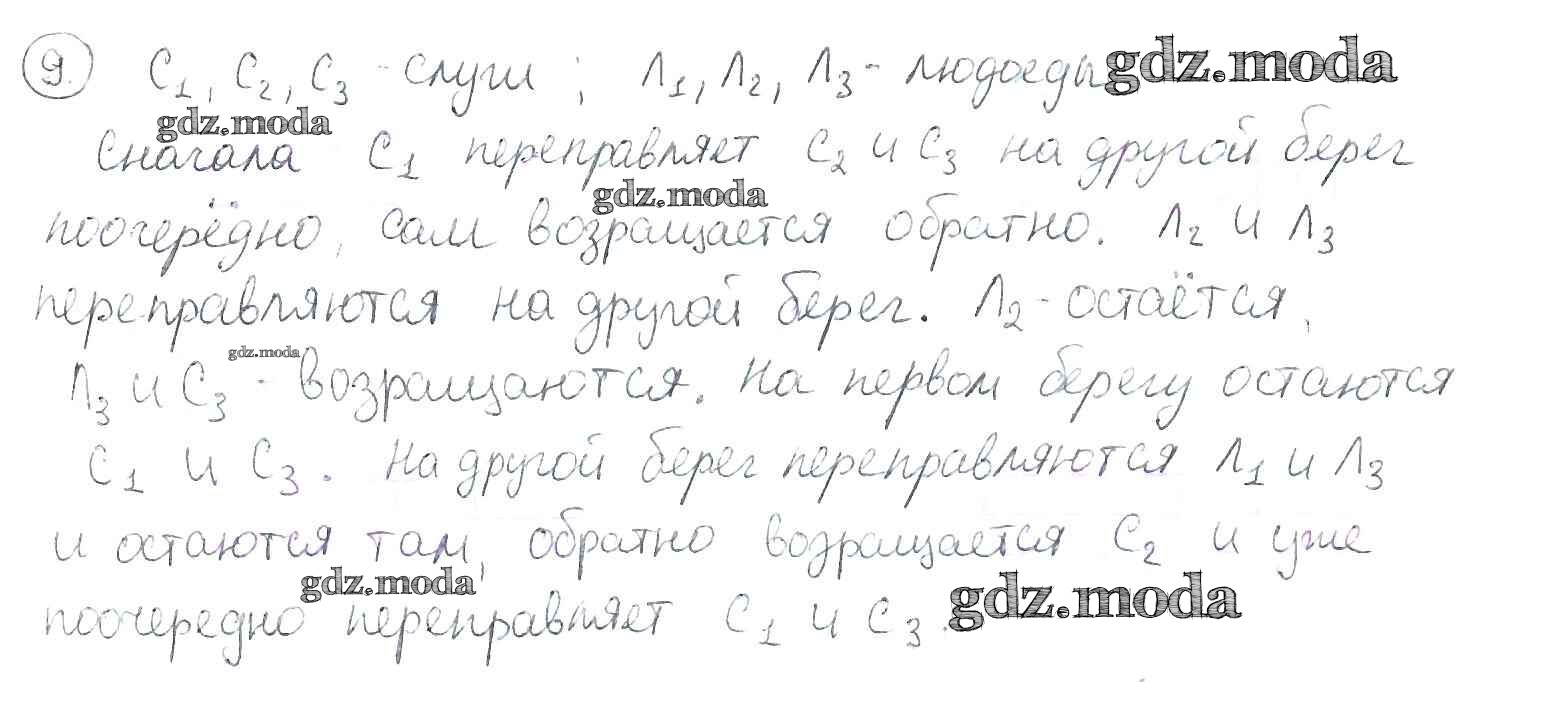 9. С1, С2, С3 - слуги ; Л1, Л2, Л3 - людоеды gdz.moda
gdz.moda
Сначала С1 переправляет С2 и С3 на другой берег
gdz.moda
поочерёдно, сам возращается обратно. Л2 и Л3
переправляются на другой берег. Л2 - остаётся,
gdz.moda
Л3 и С3 - возращаются. На первом берегу остаются
С1 и С3. На другой берег переправляются Л1 и Л3
и остаются там, обратно возращается С2 и уже
gdz.moda
поочередно переправляет С1 и С3. gdz.moda